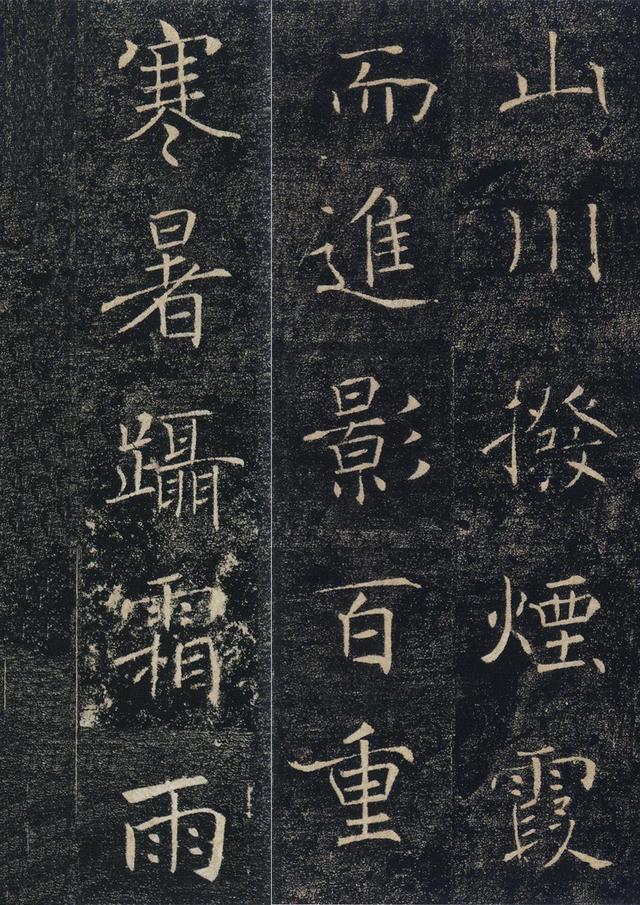 山川撥煙霞
而進影百重
寒暑躡霜雨